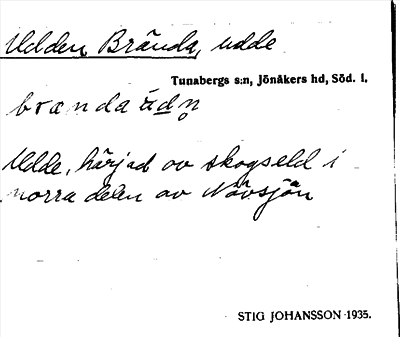 Udden Brända, udde
Tunabergs s:n, Jönåkers hd, Söd. l.
brœnda ùdn̥
Udde, härjad av skogseld i
norra delen av Nävsjön
STIG JOHANSSON 1935.